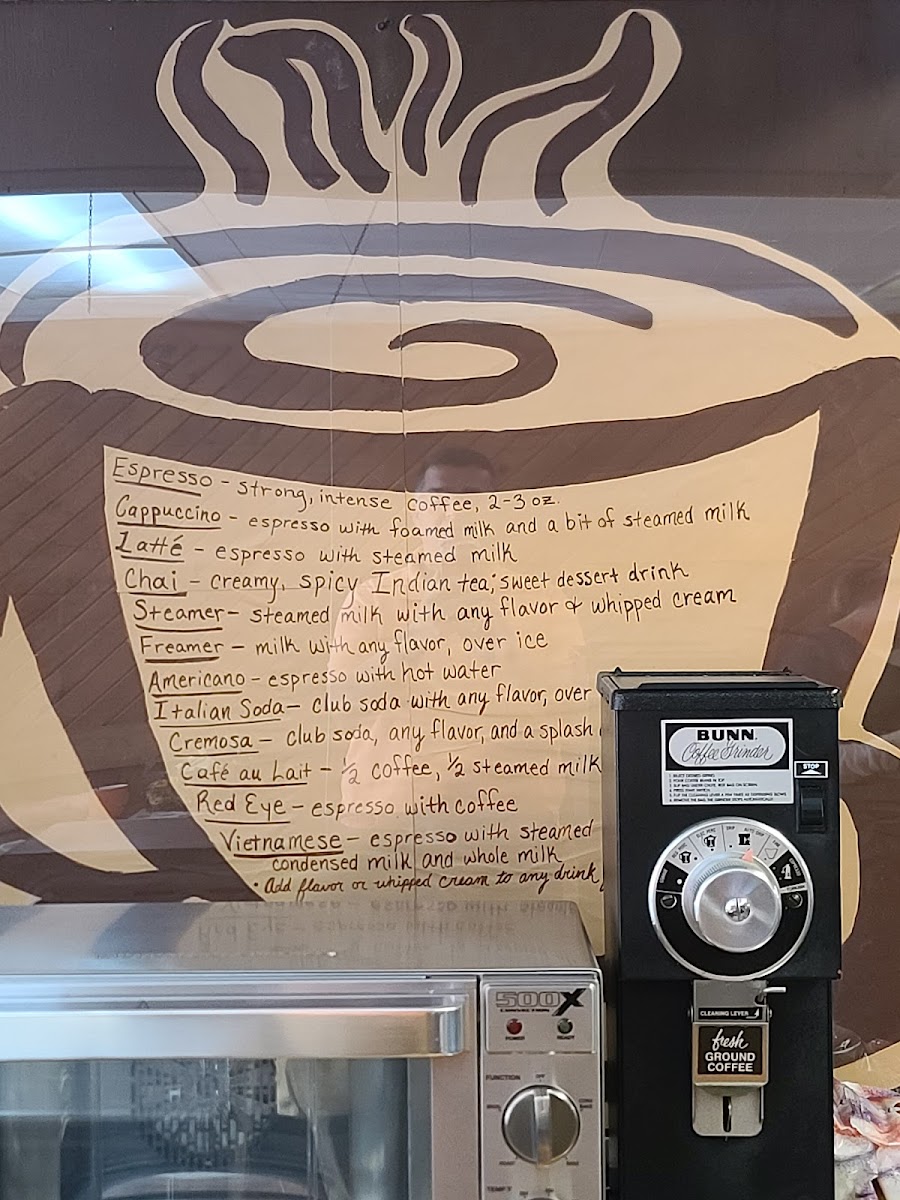 Espresso - strong, intense coffee, 2-3 oz.
Cappuccino - espresso with foamed milk and a bit of steamed milk
Latté - espresso with steamed milk
Chai - creamy, spicy Indian tea; sweet dessert drink
Steamer - steamed milk with any flavor & whipped cream
Freamer - milk with any flavor, over ice
Americano - espresso with hot water
Italian Soda - club soda with any flavor, over
Cremosa - club soda, any flavor, and a splash
Café au Lait - ½ coffee, ½ steamed milk
Red Eye - espresso with coffee
Vietnamese - espresso with steamed
condensed milk and whole milk
• Add flavor or whipped cream to any drink
BUNN
Coffee Grinder
STOP
CLEANING LEVER
fresh
GROUND
COFFEE
500X
POWER
READY
FUNCTION
OFF